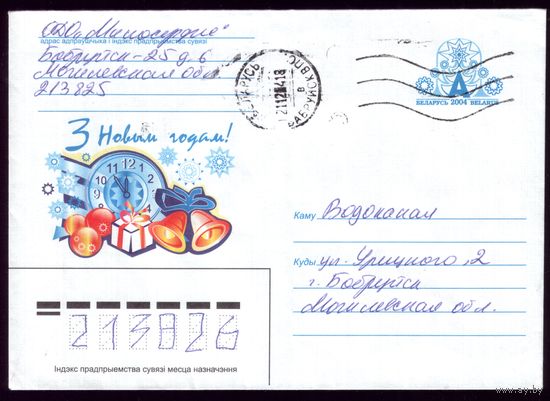 ОДО „Милосердие"
адрас адпраўшчыка і індэкс прадпрыемства сувязі
Бобруйск-25 д. 6
Могилевская обл.
213825
БЕЛАРУСЬ 2004 BELARUS
A
З Новым годам!
Каму Водоканал
Куды ул. Урицкого, 2
г. Бобруйск
Могилевская обл.
213826
Індэкс прадпрыемства сувязі месца назначэння
www.ay.by